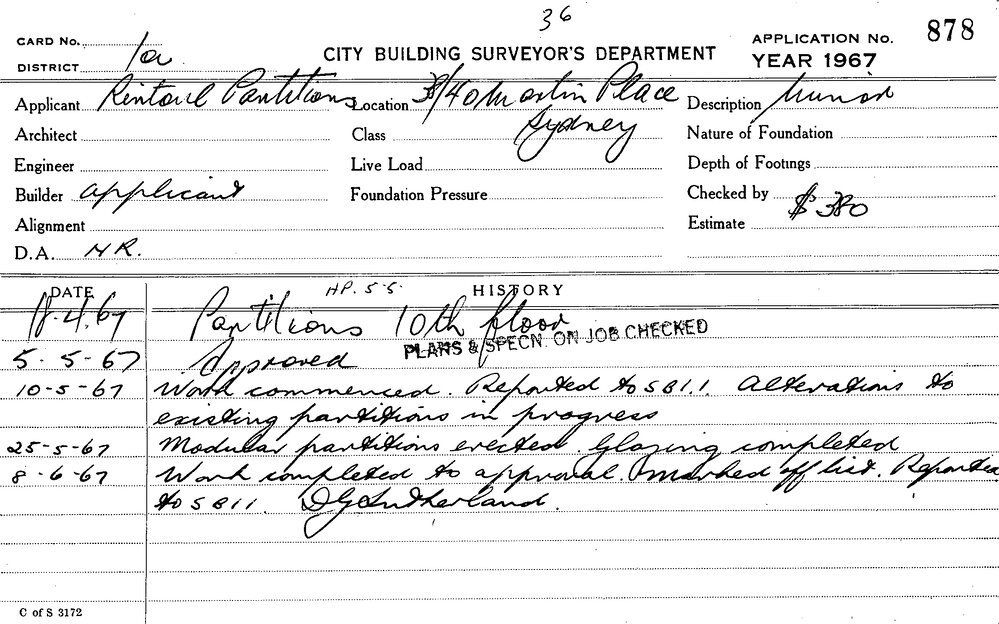 36
CARD No.
DISTRICT 1a
CITY BUILDING SURVEYOR'S DEPARTMENT
APPLICATION No. 878
YEAR 1967
Applicant Rintoul Partitions Location 38/40 Martin Place Sydney Description Minor
Architect Class Nature of Foundation
Engineer Live Load Depth of Footings
Builder applicant Foundation Pressure Checked by
Alignment Estimate $380
D.A. NR.
DATE HP. 5-5. HISTORY
18.4.67 Partitions 10th floor
PLANS & SPECN. ON JOB CHECKED
5-5-67 Approved
10-5-67 Work commenced. Reported to SBI 1. Alterations to
existing partitions in progress
25-5-67 Modular partitions erected. Glazing completed
8-6-67 Work completed to approval. Marked off list. Reported
to SBI 1. D G Sutherland.
C of S 3172